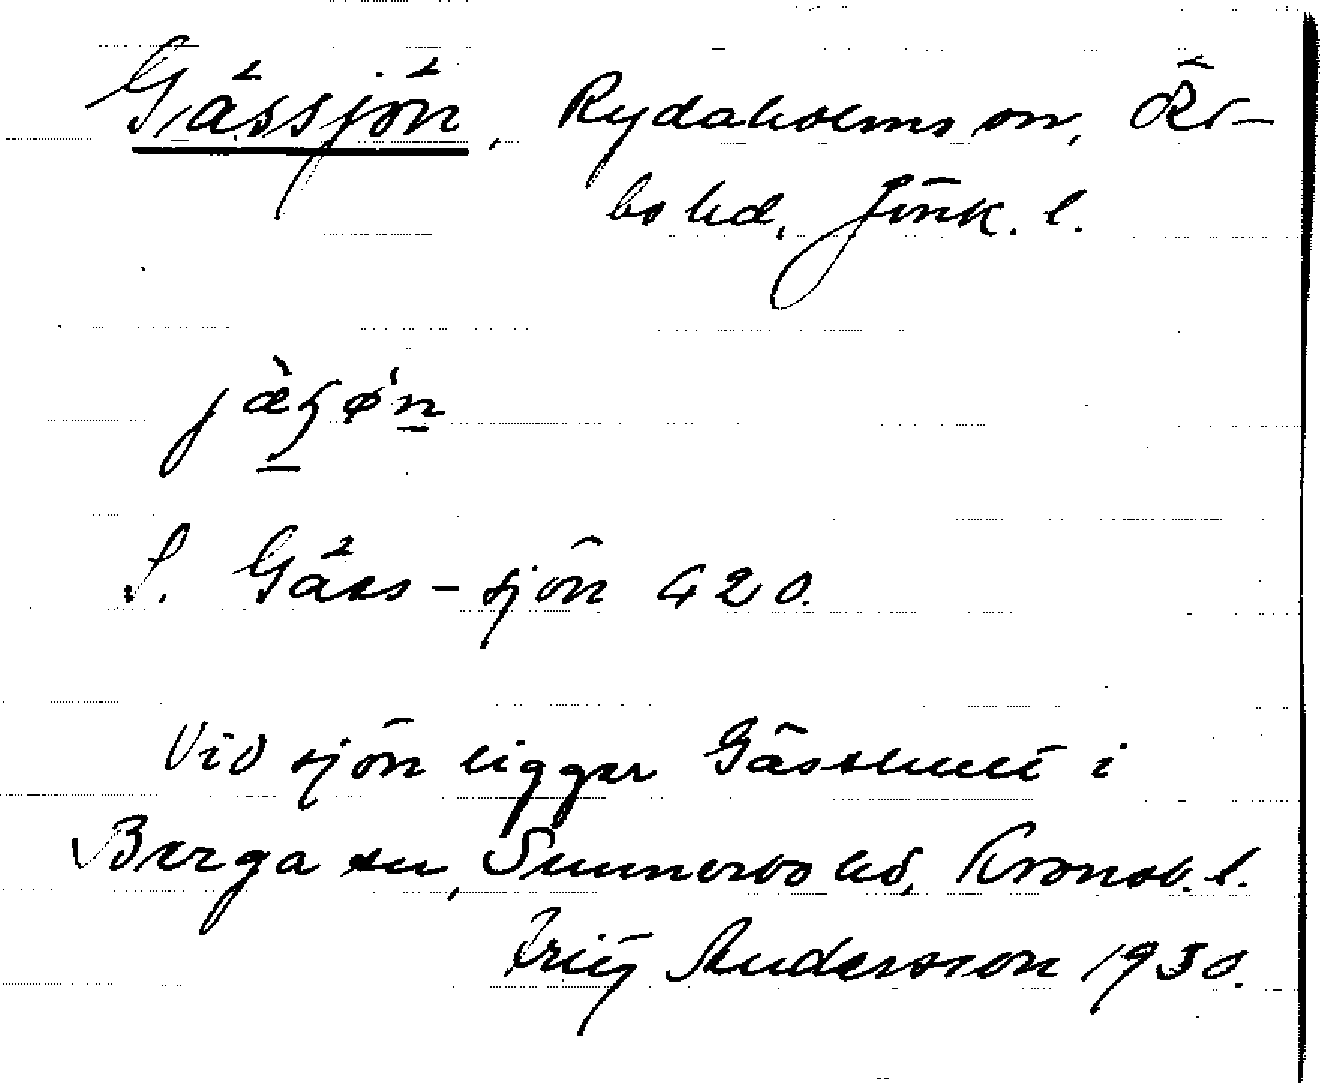 Gässjön, Rydaholms sn, Öst-
bo hd, Jönk. l.
S. Gäss-sjön 420.
Vid sjön ligger Gässhult i
Berga sn, Sunnerbo hd, Kronob. l.
Andersson 1930.